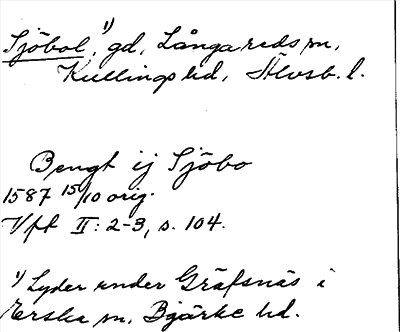 Sjöbol,¹⁾ gd, Långareds sn,
Kullings hd, Älvsb. l.
Bengt ij Sjöbo
1587 15/10 orig.
Vfl II: 2-3, s. 104.
¹⁾ Lyder under Gräfsnäs i
Erska sn, Bjärke hd.